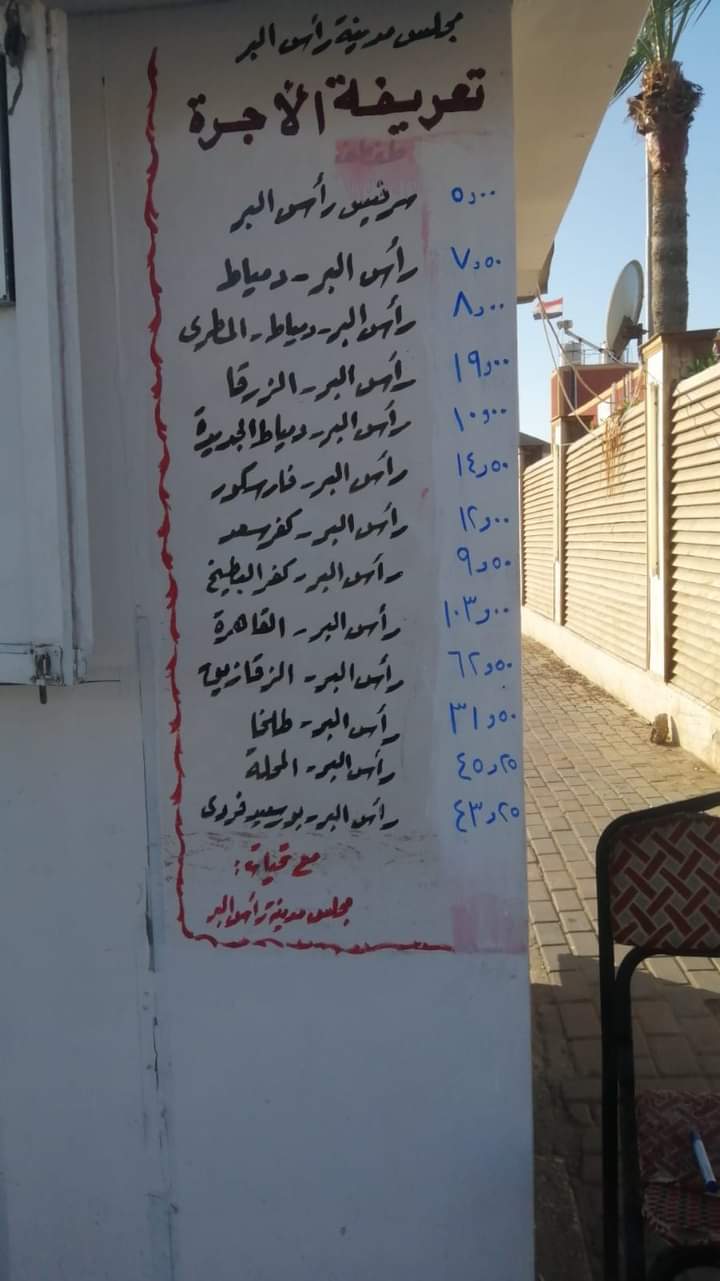 مجلس مدينة رأس البر
تعريفة الأجرة
سرفيس رأس البر ٥٫٠٠
رأس البر - دمياط ٧٫٥٠
رأس البر - دمياط - المطرى ٨٫٠٠
رأس البر - الزرقا ١٩٫٠٠
رأس البر - دمياط الجديدة ١٠٫٠٠
رأس البر - فارسكور ١٤٫٥٠
رأس البر - كفر سعد ١٢٫٠٠
رأس البر - كفر البطيخ ٩٫٥٠
رأس البر - القاهرة ١٠٣٫٠٠
رأس البر - الزقازيق ٦٢٫٥٠
رأس البر - طلخا ٣١٫٥٠
رأس البر - المحلة ٤٥٫٢٥
رأس البر - بورسعيد فردى ٤٣٫٢٥
مع تحيات :
مجلس مدينة رأس البر